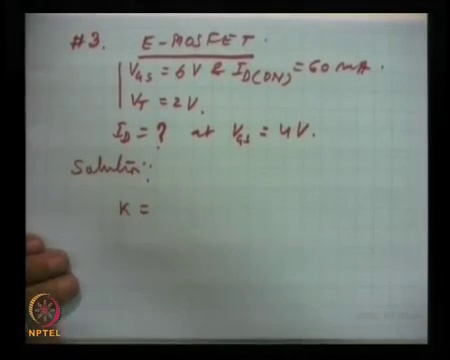 #3. E-MOSFET.
V_GS = 6 V & I_D(ON) = 60 mA.
V_T = 2 V.
I_D = ? at V_GS = 4 V.
Solution:
K =
NPTEL